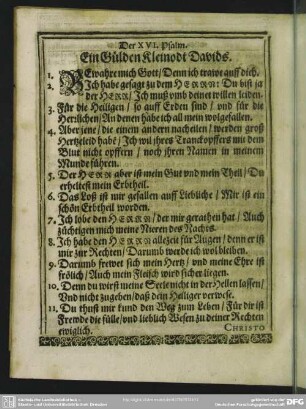 Der XVI. Psalm.
Ein Gülden Kleinodt Davids.
1. BEwahre mich Gott/ Denn ich trawe auff dich.
2. Ich habe gesagt zu dem HERRN: Du bist ja
der HERR/ Ich muß umb deinet willen leiden.
3. Für die Heiligen/ so auff Erden sind/ und für die
Herrlichen/ An denen habe ich all mein wolgefallen.
4. Aber jene/ die einem andern nacheilen/ werden groß
Hertzeleid habẽ/ Ich wil jhres Tranckopffers mit dem
Blut nicht opffern/ noch jhren Namen in meinem
Munde führen.
5. Der HERR aber ist mein Gut und mein Theil/ Du
erheltest mein Erbtheil.
6. Das Loß ist mir gefallen auff Liebliche/ Mir ist ein
schön Erbtheil worden.
7. Ich lobe den HERRN/ der mir gerathen hat/ Auch
züchtigen mich meine Nieren des Nachts.
8. Ich habe den HERRN allezeit für Augen/ denn er ist
mir zur Rechten/ Darumb werde ich wol bleiben.
9. Darumb frewet sich mein Hertz/ und meine Ehre ist
frölich/ Auch mein Fleisch wird sicher liegen.
10. Denn du wirst meine Seele nicht in der Hellen lassen/
Und nicht zugeben/ daß dein Heiliger verwese.
11. Du thust mir kund den Weg zum Leben/ Für dir ist
Frewde die fülle/ und lieblich Wesen zu deiner Rechten
ewiglich.
CHRISTO